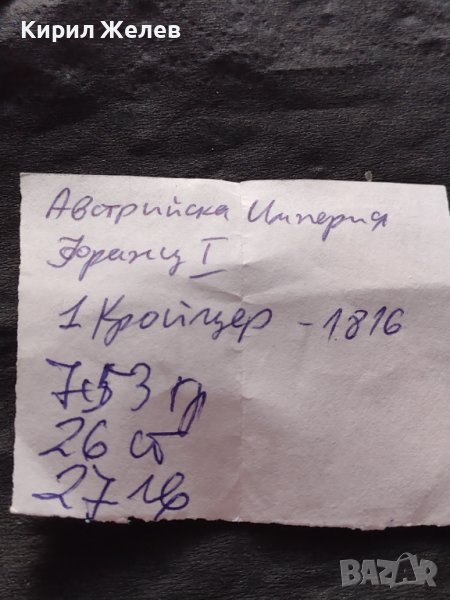 Кирил Желев
Австрийска Империя
Франц I
1 Кройцер - 1816
7.53 гр
26 ст
27 лв
BAZAR